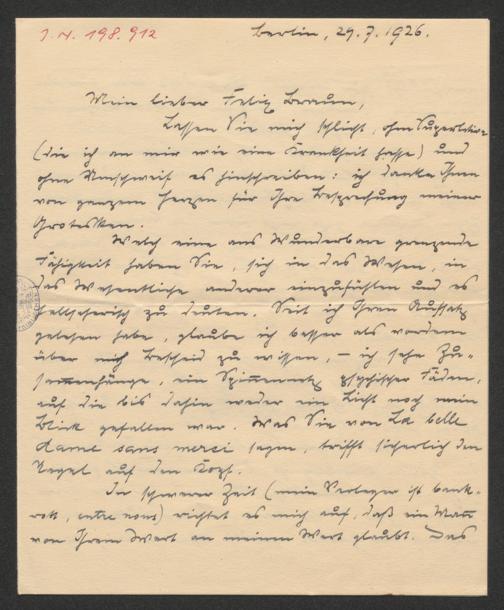 J. N. 198.912
Berlin, 29.7.1926.
Mein lieber Felix Braun,
Lassen Sie mich schlicht, ohne Superlative
(die ich an mir wie eine Krankheit hasse) und
ohne Umschweif es hinschreiben: ich danke Ihnen
von ganzem Herzen für Ihre Besprechung meiner
Grotesken.
Welch eine ans Wunderbare grenzende
Fähigkeit haben Sie, sich in das Wesen, in
das Wesentliche anderer einzufühlen und es
hellseherisch zu deuten. Seit ich Ihren Aufsatz
gelesen habe, glaube ich besser als vordem
über mich Bescheid zu wissen, – ich sehe Zu-
sammenhänge, ein Spinnennetz psychischer Fäden,
auf die bis dahin weder ein Licht noch mein
Blick gefallen war. Was Sie von La belle
dame sans merci sagen, trifft sicherlich den
Nagel auf den Kopf.
In schwerer Zeit (mein Verleger ist bank-
rott, entre nous) richtet es mich auf, daß ein Mann
von Ihrem Wert an meinen Wert glaubt. Das